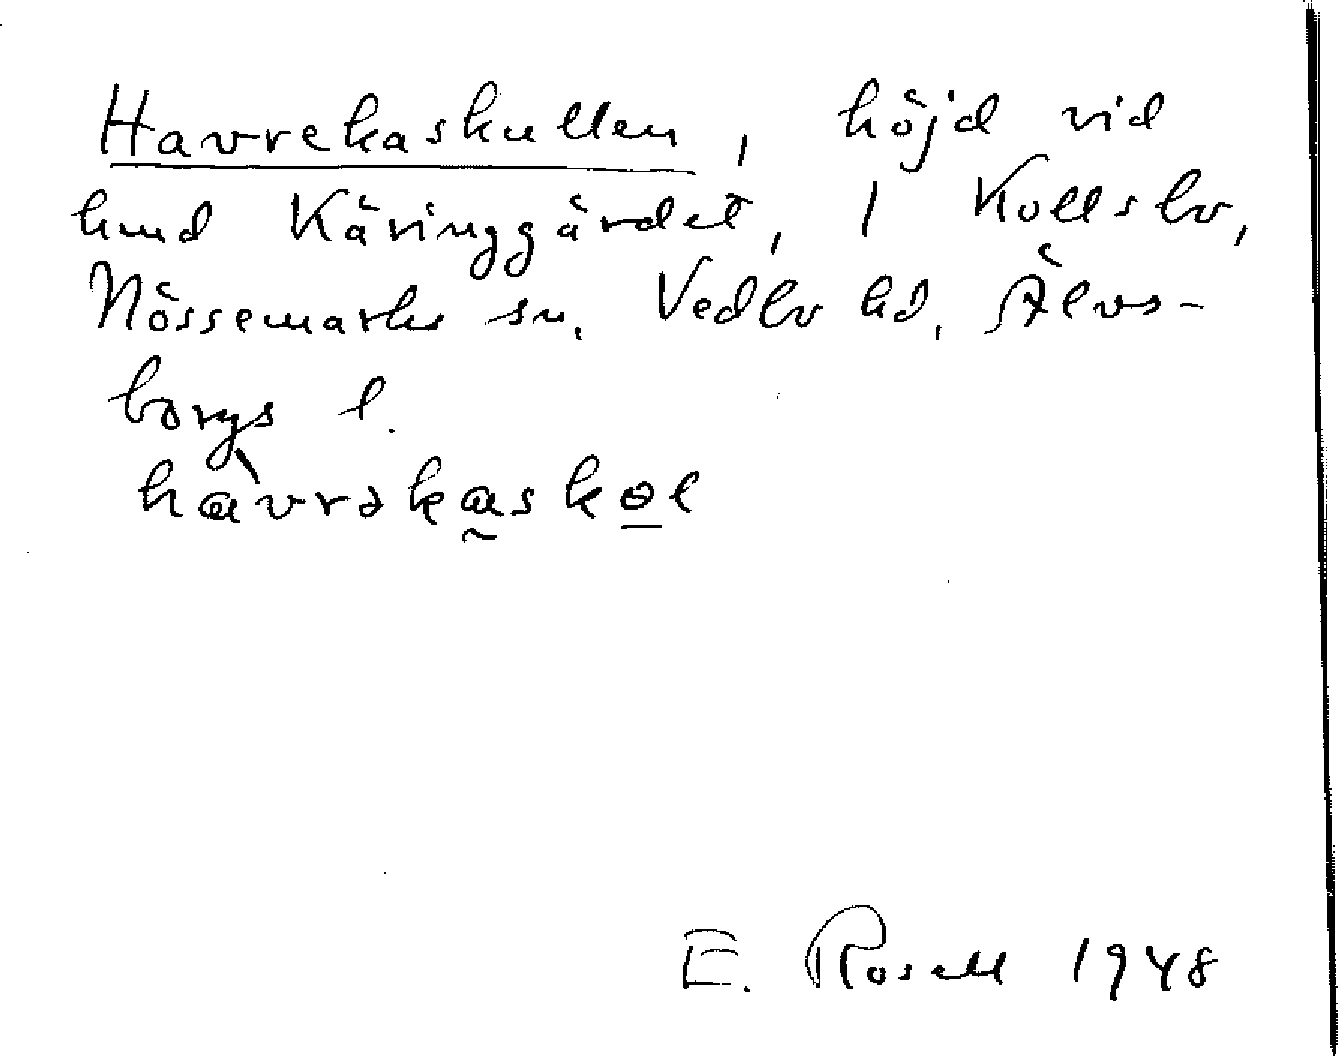 Havrekaskullen, höjd vid
lund Käringgärdet, 1 Kollsbv,
Nössemarks sn. Vedbv hd, Älvs-
borgs l.
hàvrəkaskɵl
E. Rosell 1948